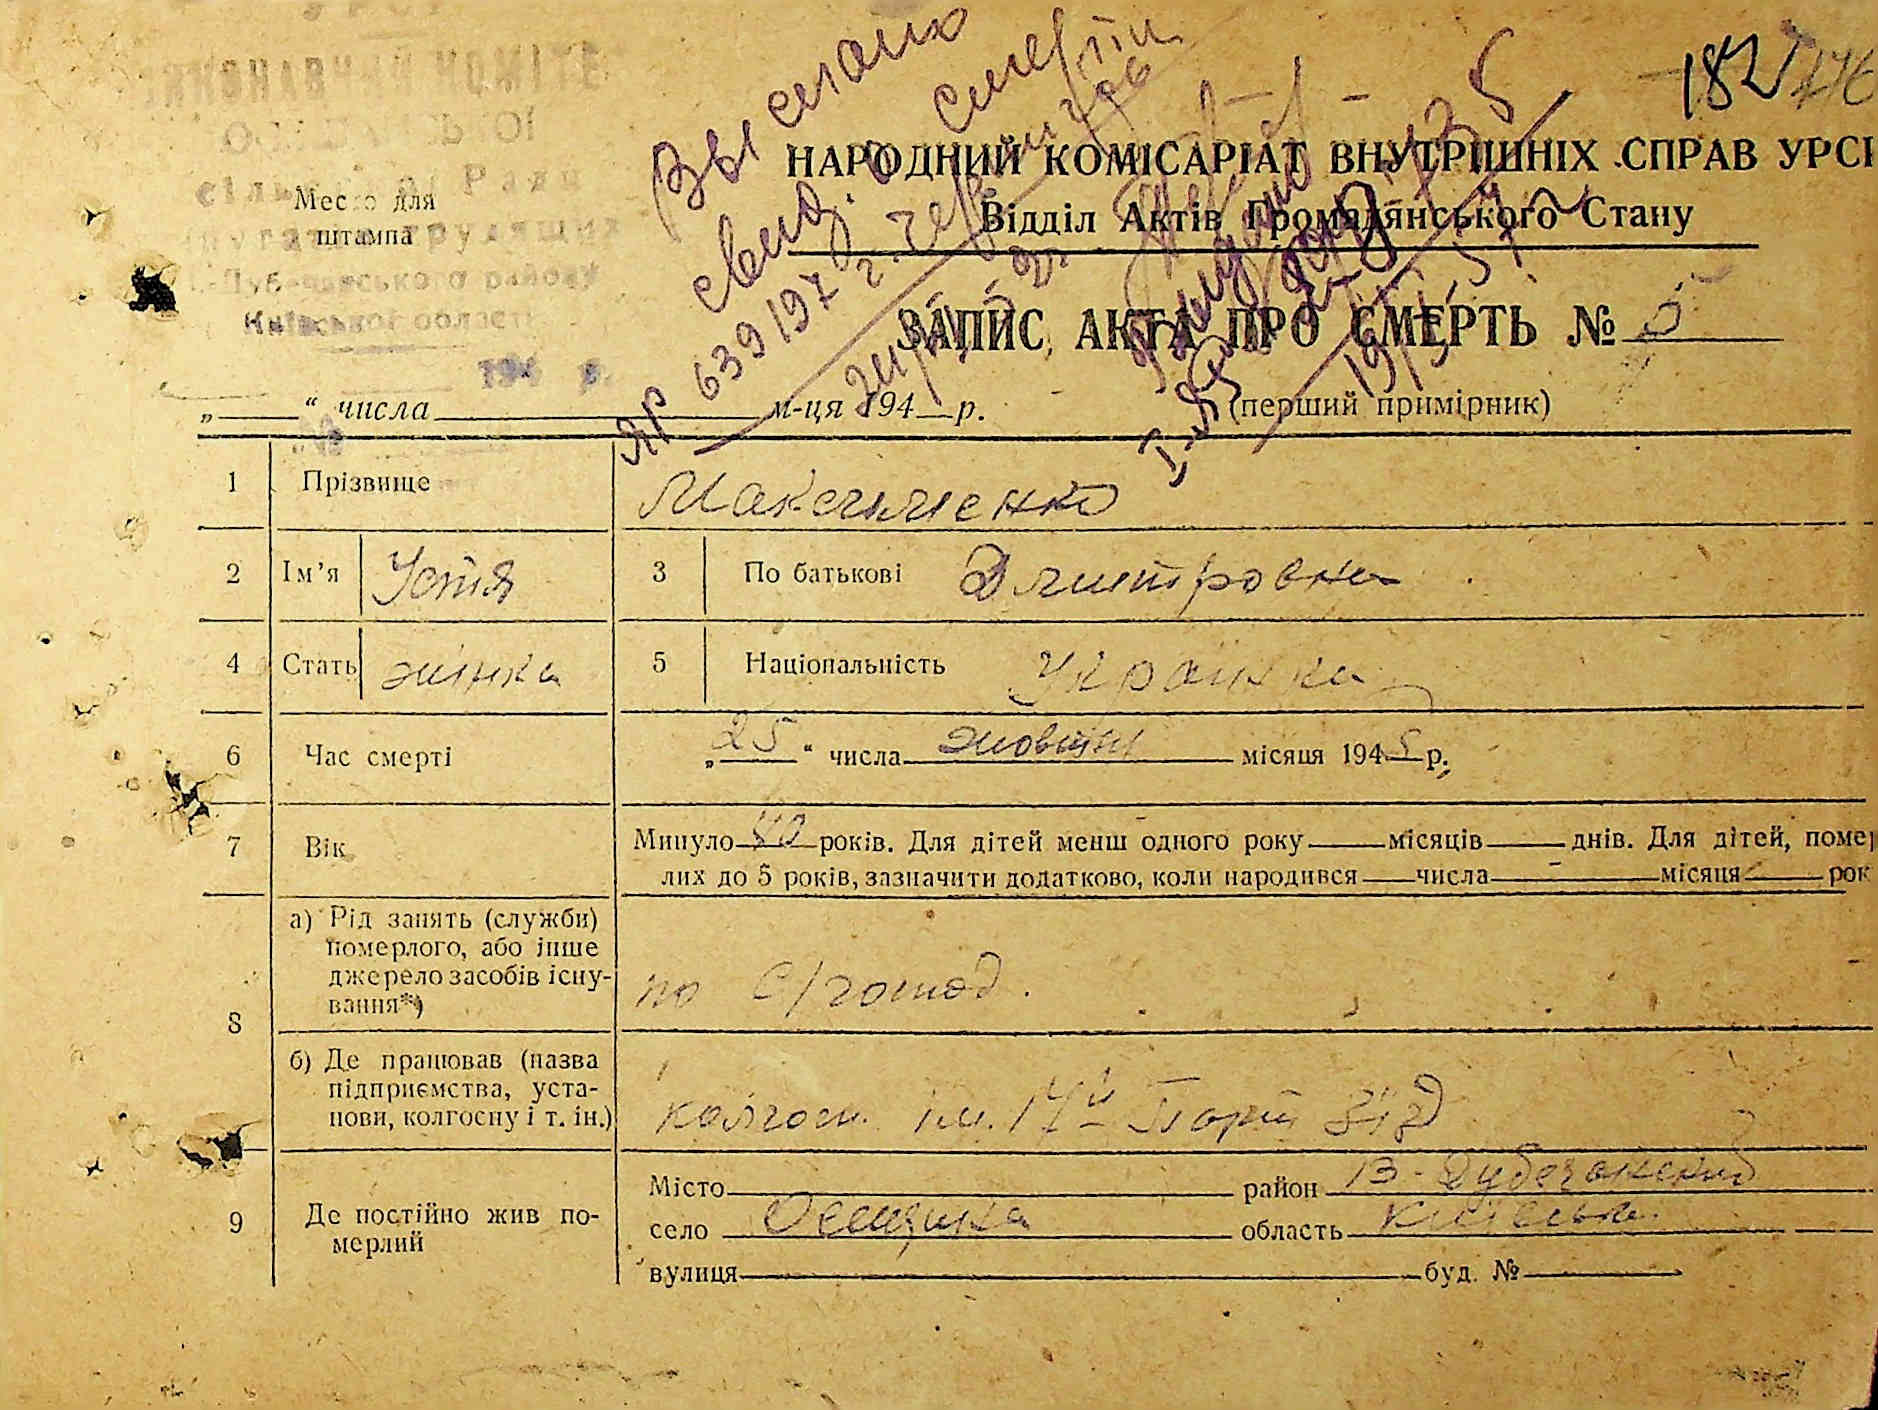 182
УРСР
ВИКОНАВЧИЙ КОМІТЕТ
сільської Ради
депутатів трудящих
В.-Дубечанського району
Київської області
194 р.
Место для
штампа
Выслано
свид. о смерти
ЯР 639197
НАРОДНИЙ КОМІСАРІАТ ВНУТРІШНІХ СПРАВ УРСР
Відділ Актів Громадянського Стану
ЗАПИС АКТА ПРО СМЕРТЬ № 5
„ “ числа м-ця 194 р. (перший примірник)
1 Прізвище Максименко
2 Ім’я Устя 3 По батькові Дмитровна
4 Стать жінка 5 Національність Українка
6 Час смерті „25“ числа жовтня місяця 1945 р.
7 Вік Минуло 40 років. Для дітей менш одного року місяців днів. Для дітей, помер
лих до 5 років, зазначити додатково, коли народився числа місяця рок
8 а) Рід занять (служби)
померлого, або інше
джерело засобів існу-
вання*) по с/господ.
б) Де працював (назва
підприємства, уста-
нови, колгоспу і т. ін.) колгосп. ім. 17й Парт З'їзд
9 Де постійно жив по-
мерлий
Місто район В-Дубечанский
село Осещина область Київська
вулиця буд. №